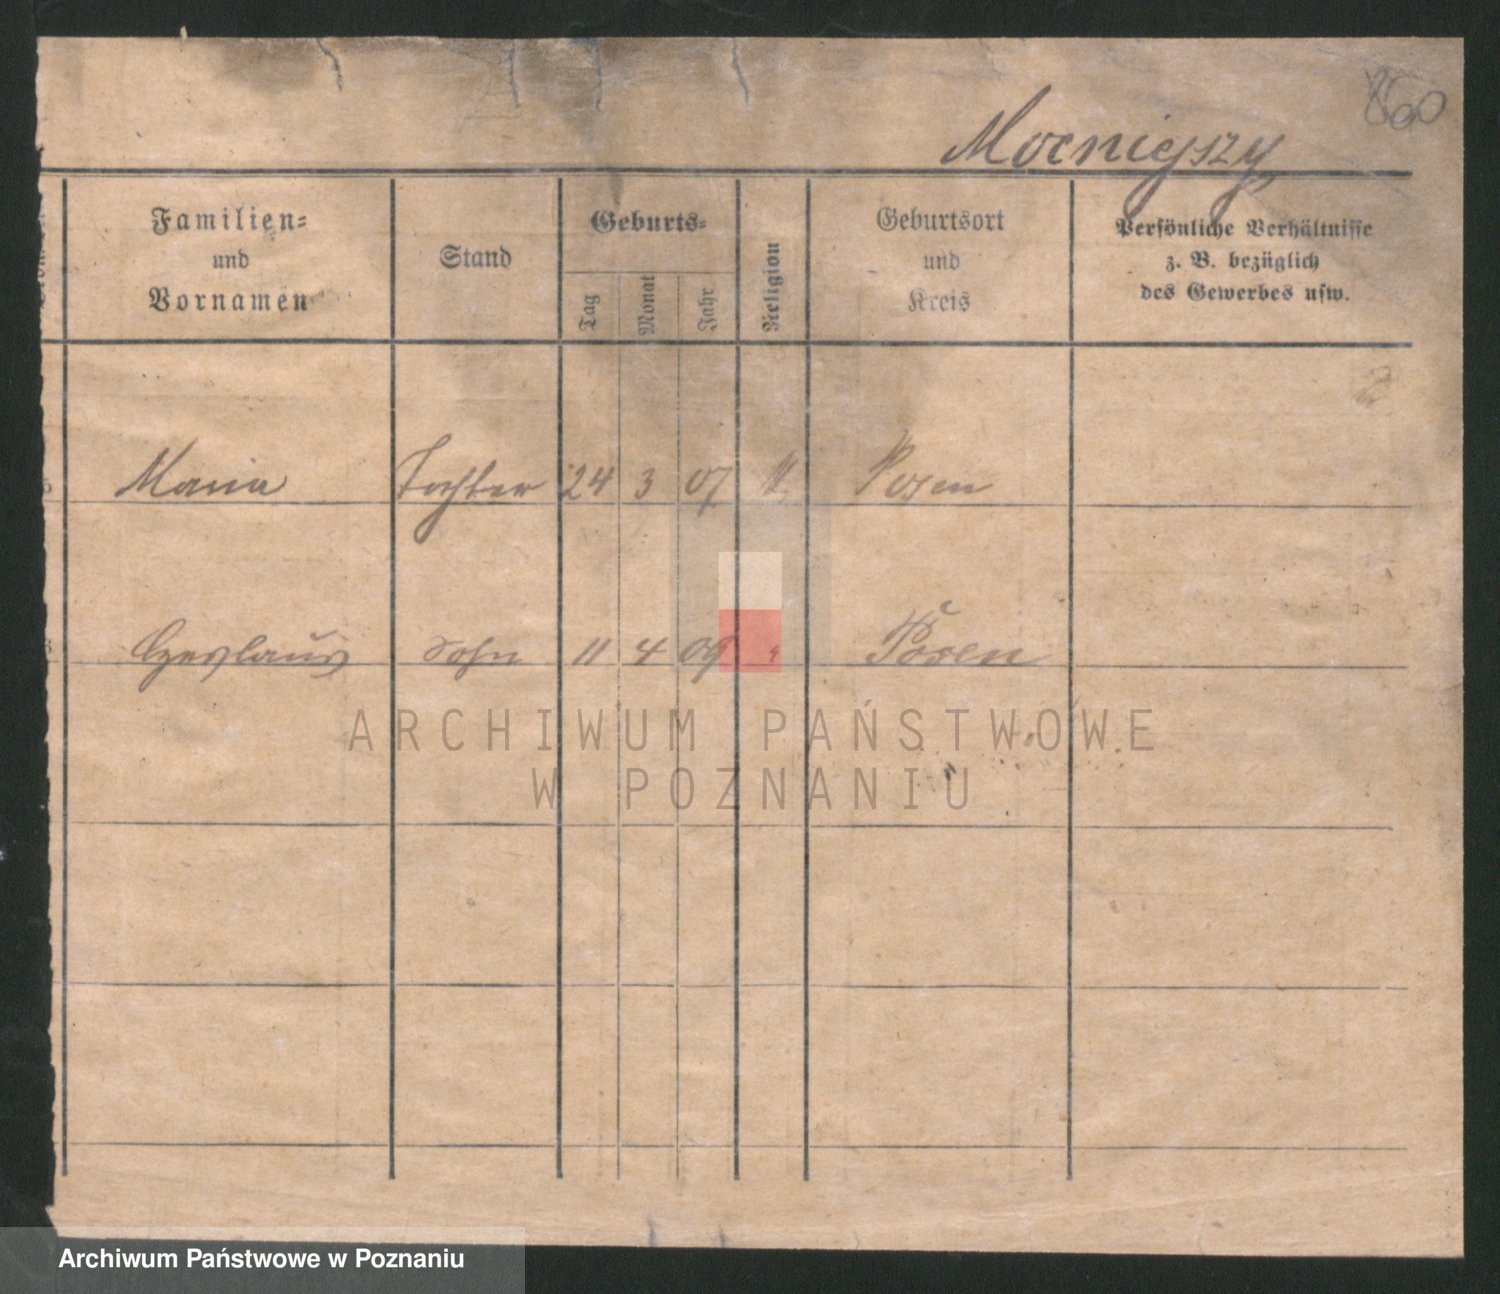 860
Familien=
und
Vornamen
Stand
Geburts=
Tag
Monat
Jahr
Religion
Geburtsort
und
Kreis
Persönliche Verhältnisse
z. B. bezüglich
des Gewerbes usw.
Maria Tochter 24 3 07 Posen
Czeslaus Sohn 11 4 09 Posen
ARCHIWUM PAŃSTWOWE
W POZNANIU
Archiwum Państwowe w Poznaniu